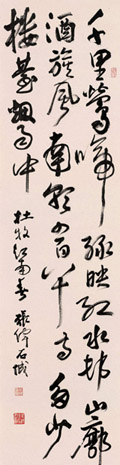 千里鶯啼綠映紅水村山廓
酒旗風南朝四百八十寺多少
樓臺烟雨中
杜牧江南春